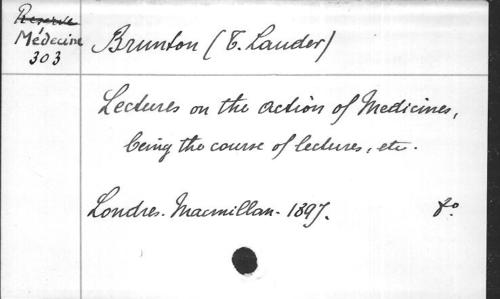 Reserve
Médecine
303
Brunton (T. Lauder)
Lectures on the action of Medicines,
being the course of lectures, etc.
Londres. Macmillan. 1897. 8º